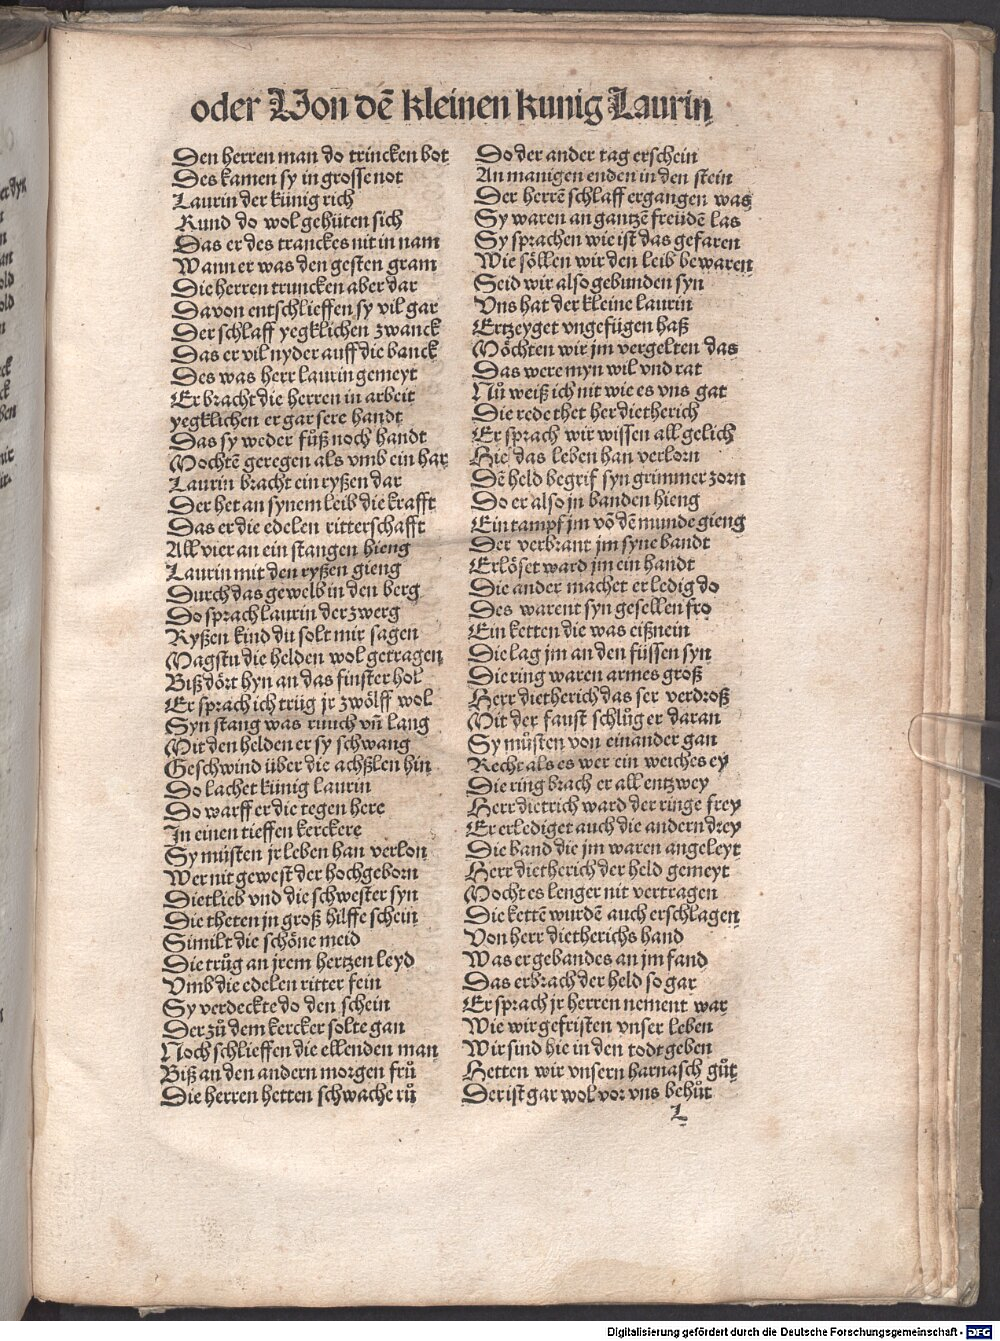 oder Von dē kleinen kunig Laurin
Den herren man do trincken bot
Des kamen sy in grosse not
Laurin der künig rich
Kund do wol gehüten sich
Das er des tranckes nit in nam
Wann er was den gesten gram
Die herren truncken aber dar
Davon entschlieffen sy vil gar
Der schlaff yegklichen zwanck
Das er vil nyder auff die banck
Des was herr laurin gemeyt
Er bracht die herren in arbeit
yegklichen er gar sere bandt
Das sy weder fůß noch handt
Mochtē geregen als vmb ein har
Laurin bracht ein ryßen dar
Der het an synem leib die krafft
Das er die edelen ritterschafft
All vier an ein stangen hieng
Laurin mit den ryßen gieng
Durch das gewelb in den berg
Do sprach laurin der zwerg
Ryßen kind du solt mir sagen
Magstu die helden wol getragen
Biß dört hyn an das finster hol
Er sprach ich trüg jr zwölff wol
Syn stang was ruuch vn̄ lang
Mit den helden er sy schwang
Geschwind über die achßlen hin
Do lachet künig laurin
Do warff er die tegen here
In einen tieffen kerckere
Sy müsten jr leben han verlon
Wer nit gewest der hochgeborn
Dietlieb vnd die schwester syn
Die theten jn groß hilffe schein
Similt die schöne meid
Die trůg an jrem hertzen leyd
Vmb die edelen ritter fein
Sy verdeckte do den schein
Der zů dem kercker solte gan
Noch schlieffen die ellenden man
Biß an den andern morgen frů
Die herren hetten schwache rů
Do der ander tag erschein
An manigen enden in den stein
Der herrē schlaff ergangen was
Sy waren an gantzē freüdē las
Sy sprachen wie ist das gefaren
Wie söllen wir den leib bewaren
Seid wir also gebunden syn
Vns hat der kleine laurin
Ertzeyget vngefügen haß
Möchten wir jm vergelten das
Das were myn wil vnd rat
Nů weiß ich nit wie es vns gat
Die rede thet her dietherich
Er sprach wir wissen all gelich
Hie das leben han verlorn
Dē held begrif syn grimmer zorn
Do er also jn banden hieng
Ein tampf jm vō dē munde gieng
Der verbrant jm syne bandt
Erlöset ward jm ein handt
Die ander machet er ledig do
Des warent syn gesellen fro
Ein ketten die was eißnein
Die lag jm an den füssen syn
Die ring waren armes groß
Herr dietherich das ser verdroß
Mit der faust schlůg er daran
Sy můsten von einander gan
Recht als es wer ein weiches ey
Die ring brach er all entzwey
Herr dietrich ward der ringe frey
Er erlediget auch die andern drey
Die band die jm waren angeleyt
Herr dietherich der held gemeyt
Mocht es lenger nit vertragen
Die kettē wurdē auch erschlagen
Von herr dietherichs hand
Was er gebandes an jm fand
Das erbrach der held so gar
Er sprach jr herren nement war
Wie wir gefristen vnser leben
Wir sind hie in den todt geben
Hetten wir vnsern harnasch gůt
Der ist gar wol vor vns behůt
L
Digitalisierung gefördert durch die Deutsche Forschungsgemeinschaft - DFG